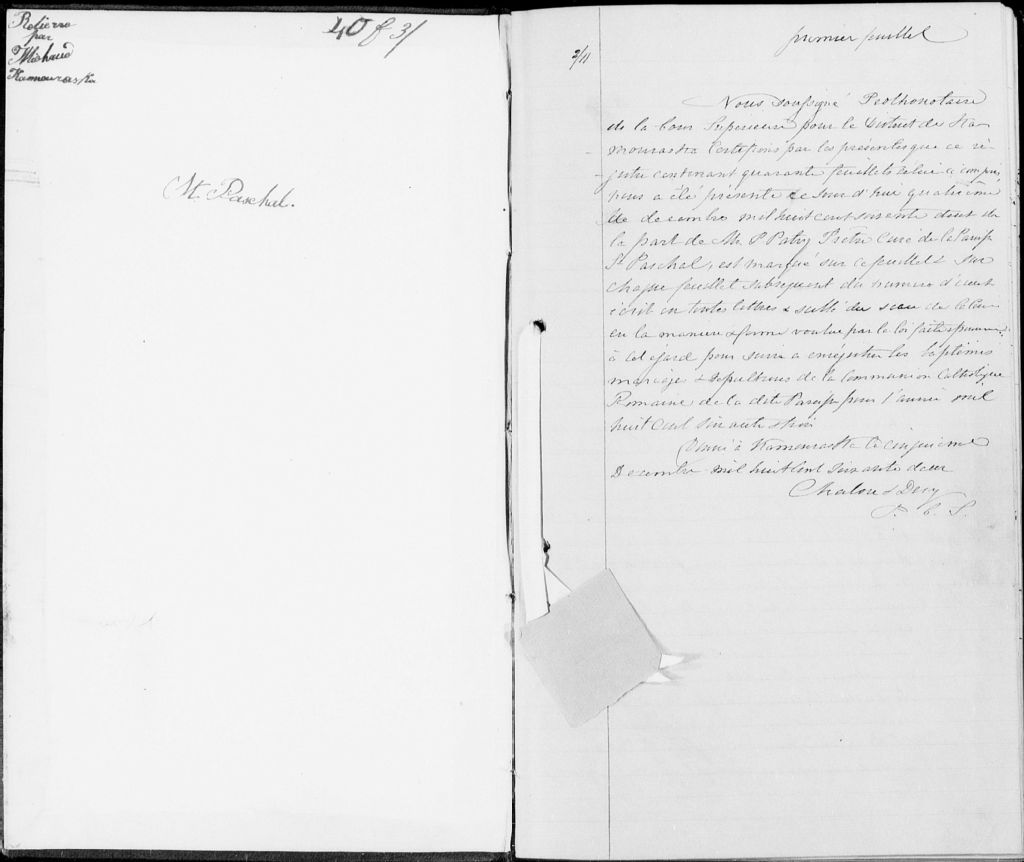 Relierre
par
JMichaud
Kamouraska
40 f 3/
St. Paschal.
premier feuillet
2/11
Nous soussigné Prothonotaire
de la Cour Superieure pour le District de Ka-
mouraska Certifions par les présentes que ce ré-
gistre contenant quarante feuillets celui ci compris
nous a été présenté ce jour d'hui quatrième
de decembre mil huit cent soixante deux de
la part de Mr P Patry Prêtre Curé de la Paroisse
St Paschal, est marqué sur ce feuillet & sur
chaque feuillet subsequent du numero d'icelui
écrit en toutes lettres & scellé du sceau de la Cour
en la manière & forme voulue par la loi faite & pourvue
à cet égard pour servir a enrégistrer les baptêmes
mariages & sepultures de la Communion Catholique
Romaine de la dite Paroisse pour l'année mil
huit cent soixante & trois
Donné à Kamouraska le cinquieme
Decembre mil huit cent soixante deux
Chalou & Dery
P. C. S.